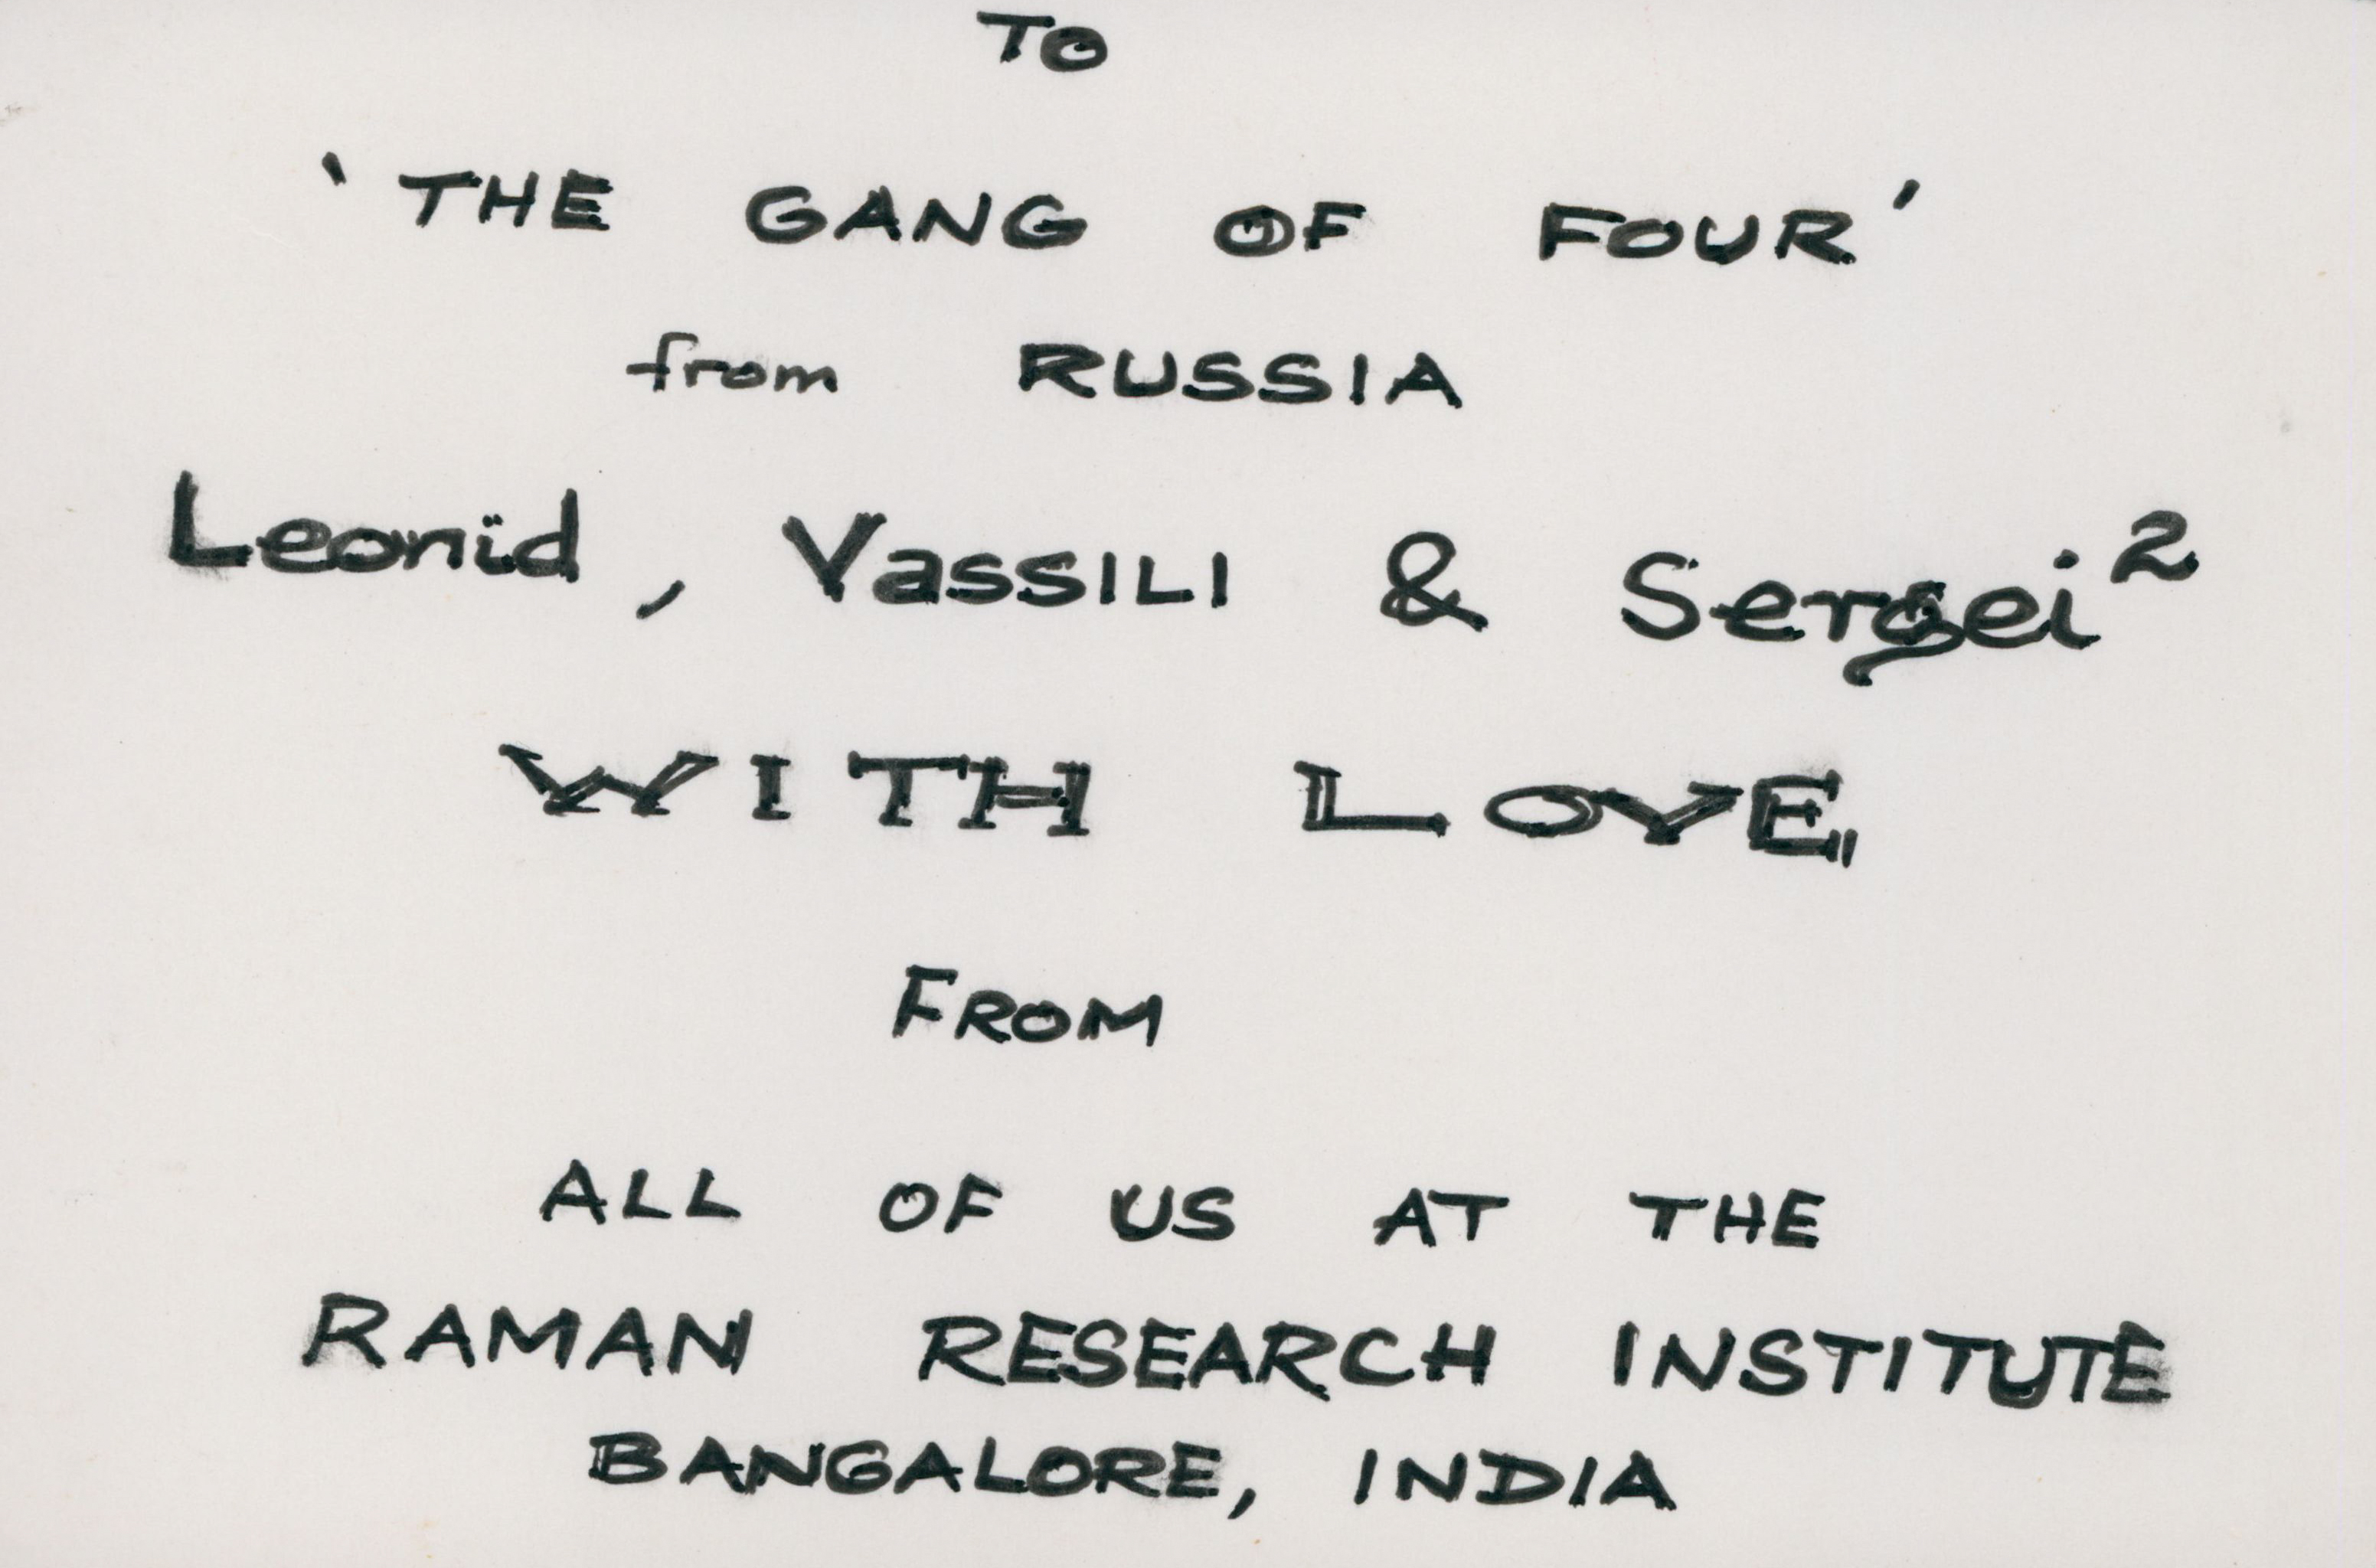 TO
‘THE GANG OF FOUR’
from RUSSIA
Leonid, VassILI & Sergei²
WITH LOVE,,
FROM
ALL OF US AT THE
RAMAN RESEARCH INSTITUTE
BANGALORE, INDIA